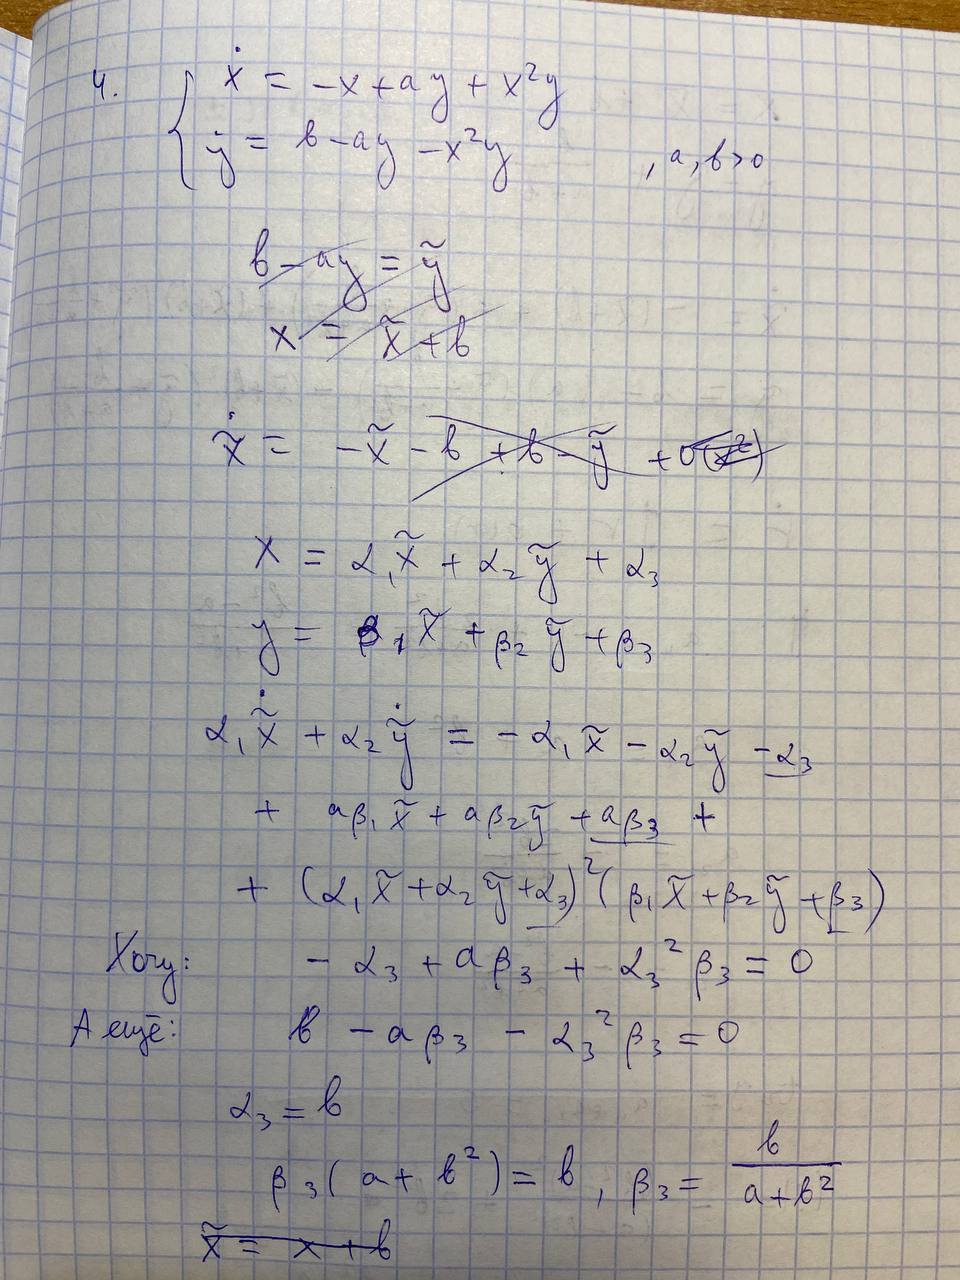 4. { ẋ = -x + ay + x²y
ẏ = b - ay - x²y , a, b > 0
b - ay = ỹ
x = x̃ + b
x̃̇ = -x̃ - b + b - ỹ + O(x²)
x = α₁x̃ + α₂ỹ + α₃
y = β₁x̃ + β₂ỹ + β₃
α₁x̃̇ + α₂ỹ̇ = -α₁x̃ - α₂ỹ - α₃
+ aβ₁x̃ + aβ₂ỹ + aβ₃ +
+ (α₁x̃ + α₂ỹ + α₃)² (β₁x̃ + β₂ỹ + β₃)
Хочу: - α₃ + aβ₃ + α₃²β₃ = 0
А ещё: b - aβ₃ - α₃²β₃ = 0
α₃ = b
β₃(a + b²) = b, β₃ = b/(a+b²)
x̃ = x + b